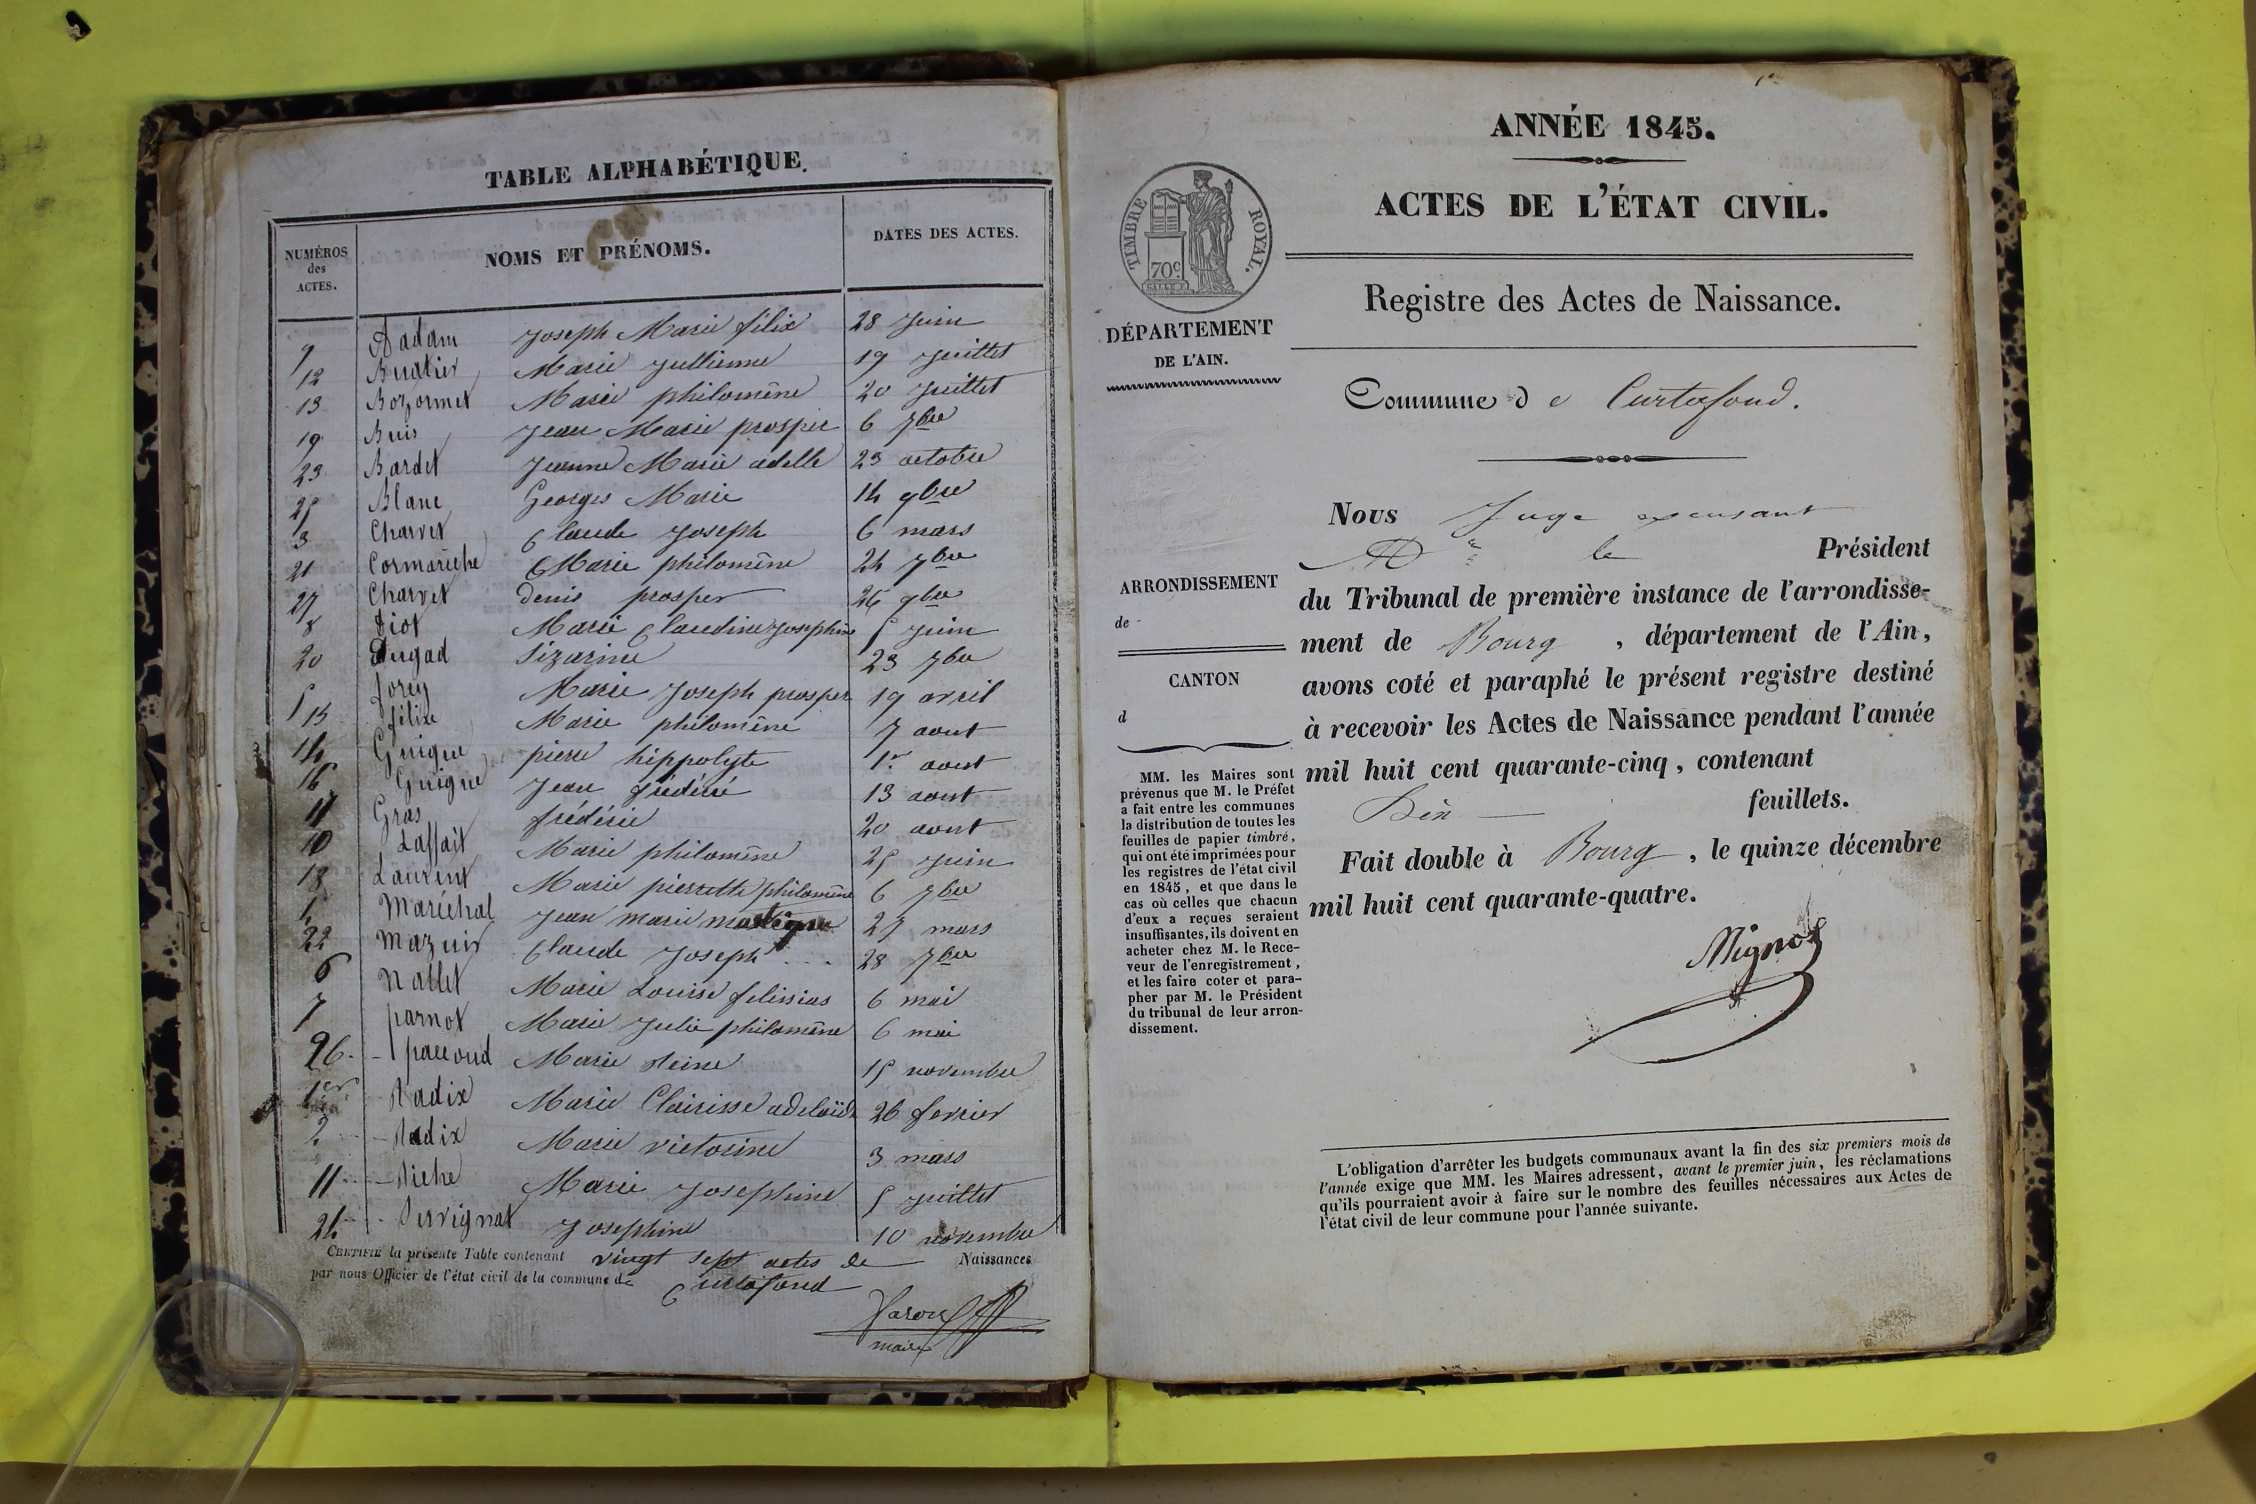 TABLE ALPHABÉTIQUE.
NUMÉROS des ACTES. NOMS ET PRÉNOMS. DATES DES ACTES.
9 Adam Joseph Marie félix 28 Juin
12 Marie Jullienne 19 Juillet
13 Bozonnet Marie philomène 20 Juillet
19 Buis Jean Marie prosper 6 7bre
23 Bardet Jeanne Marie adelle 23 octobre
25 Blanc Georges Marie 14 9bre
3 Charvet Claude Joseph 6 mars
21 Cormarèche Marie philomène 24 7bre
27 Charvet denis prosper 26 9bre
8 diot Marie Claudine Josephine 5 Juin
20 Dugad Sézarine 23 7bre
5 forey Marie Joseph prosper 19 avril
15 félix Marie philomène 7 aout
14 Guigue pierre hippolyte 1er aout
16 Guigue Jean frédéric 13 aout
17 Gras frédéric 20 aout
10 Laffait Marie philomène 25 Juin
18 Laurent Marie pierrette philomène 6 7bre
Maréchal Jean marie 27 mars
22 mazuir Claude Joseph 28 7bre
6 nallet Marie Louise felissias 6 mai
7 parnot Marie Julie philomène 6 mai
26 paccoud Marie Reine 15 novembre
1er Radix Marie Clairisse adelaïde 26 fevrier
2 Radix Marie victorine 3 mars
11 Riche Marie Josephine 5 Juillet
24 Pervignat Josephine 10 novembre
CERTIFIÉ la présente Table contenant vingt sept actes de Naissances
par nous Officier de l'état civil de la commune de Curtafond
maire
ANNÉE 1845.
ACTES DE L'ÉTAT CIVIL.
TIMBRE ROYAL.
70c
Registre des Actes de Naissance.
DÉPARTEMENT
DE L'AIN.
Commune de Curtafond.
Nous Juge excusant
Mr le Président
ARRONDISSEMENT
de
CANTON
d
du Tribunal de première instance de l'arrondisse-
ment de Bourg, département de l'Ain,
avons coté et paraphé le présent registre destiné
à recevoir les Actes de Naissance pendant l'année
mil huit cent quarante-cinq, contenant
Dix feuillets.
Fait double à Bourg, le quinze décembre
mil huit cent quarante-quatre.
Mignot
MM. les Maires sont
prévenus que M. le Préfet
a fait entre les communes
la distribution de toutes les
feuilles de papier timbré,
qui ont été imprimées pour
les registres de l'état civil
en 1845, et que dans le
cas où celles que chacun
d'eux a reçues seraient
insuffisantes, ils doivent en
acheter chez M. le Rece-
veur de l'enregistrement,
et les faire coter et para-
pher par M. le Président
du tribunal de leur arron-
dissement.
L'obligation d'arrêter les budgets communaux avant la fin des six premiers mois de
l'année exige que MM. les Maires adressent, avant le premier juin, les réclamations
qu'ils pourraient avoir à faire sur le nombre des feuilles nécessaires aux Actes de
l'état civil de leur commune pour l'année suivante.